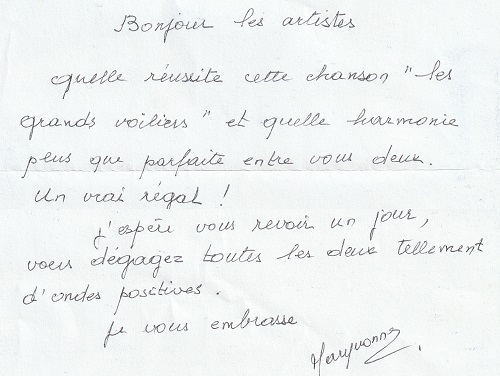 Bonjour les artistes
quelle réussite cette chanson "les
grands voiliers" et quelle harmonie
plus que parfaite entre vous deux.
Un vrai régal !
J'espère vous revoir un jour,
vous dégagez toutes les deux tellement
d'ondes positives.
Je vous embrasse
Maryvonne.